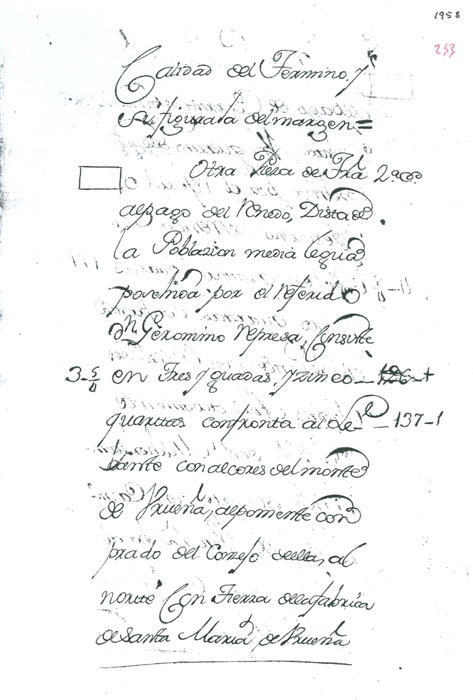 1958
253
Calidad del Termino, y
su figura la del margen =
Otra Pieza de Tra 2ª
al pago del Dista de
la Poblazion media legua,
posehida por el referido
Dn Geronimo Represa, Consiste
3-5/4 en Tres Yguadas, y zinco - 126-1
quartas confronta al Le- 137-1
bante con alcores del monte
de Urueña, al poniente con
prado del Consejo della, al
norte Con Tierra de la fabrica
de Santa Maria de Urueña